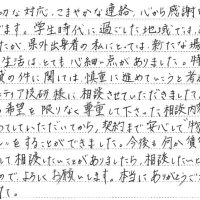 切な対応、こまやかな連絡、心から感謝
ます。学生時代に過ごした地域です
たが、県外出身者の私にとっては、新たな場
生活は、とても心細い点がありました。特
賃の件に関しては、慎重に進めていこうと考え
ティア技研 様に相談させていただきまして、
の希望を限りなく尊重して下さった相談内容
っていただいてから、契約まで安心して物
いをすることができました。今後も何か賃貸
して相談したいことがありましたら、相談したいと
ので、よろしくお願いします。本当にありがとうござ
た。